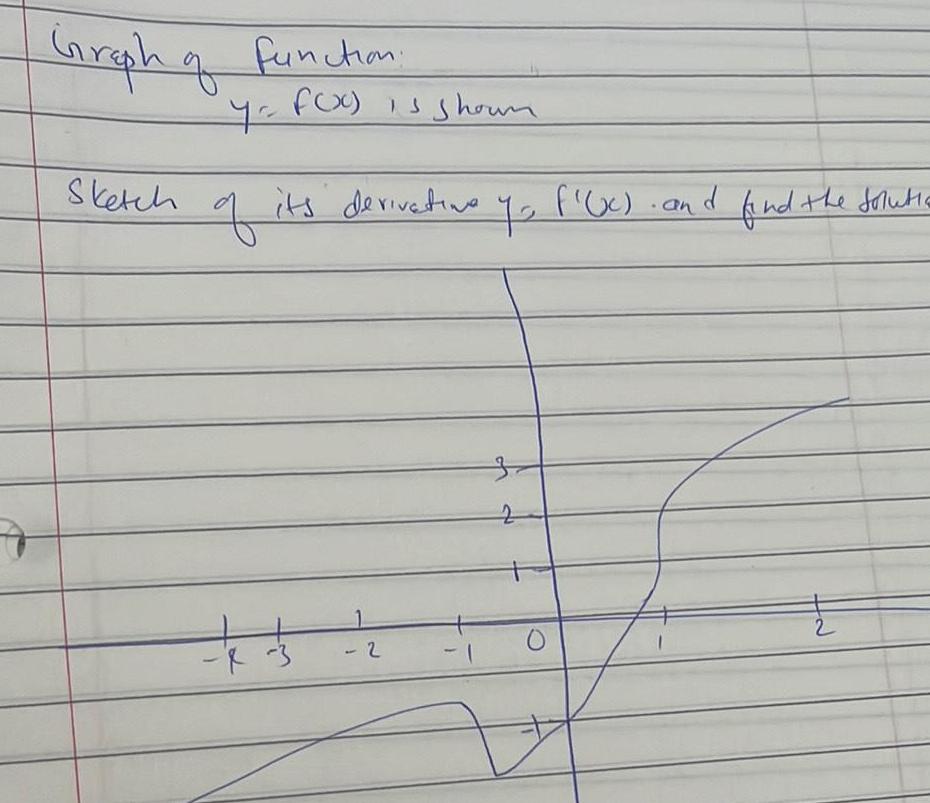 Graph of function:
y = f(x) is shown
Sketch of its derivative y = f'(x) . and find the
3
2
1
-4 -3 -2 -1 0 1 2
-1